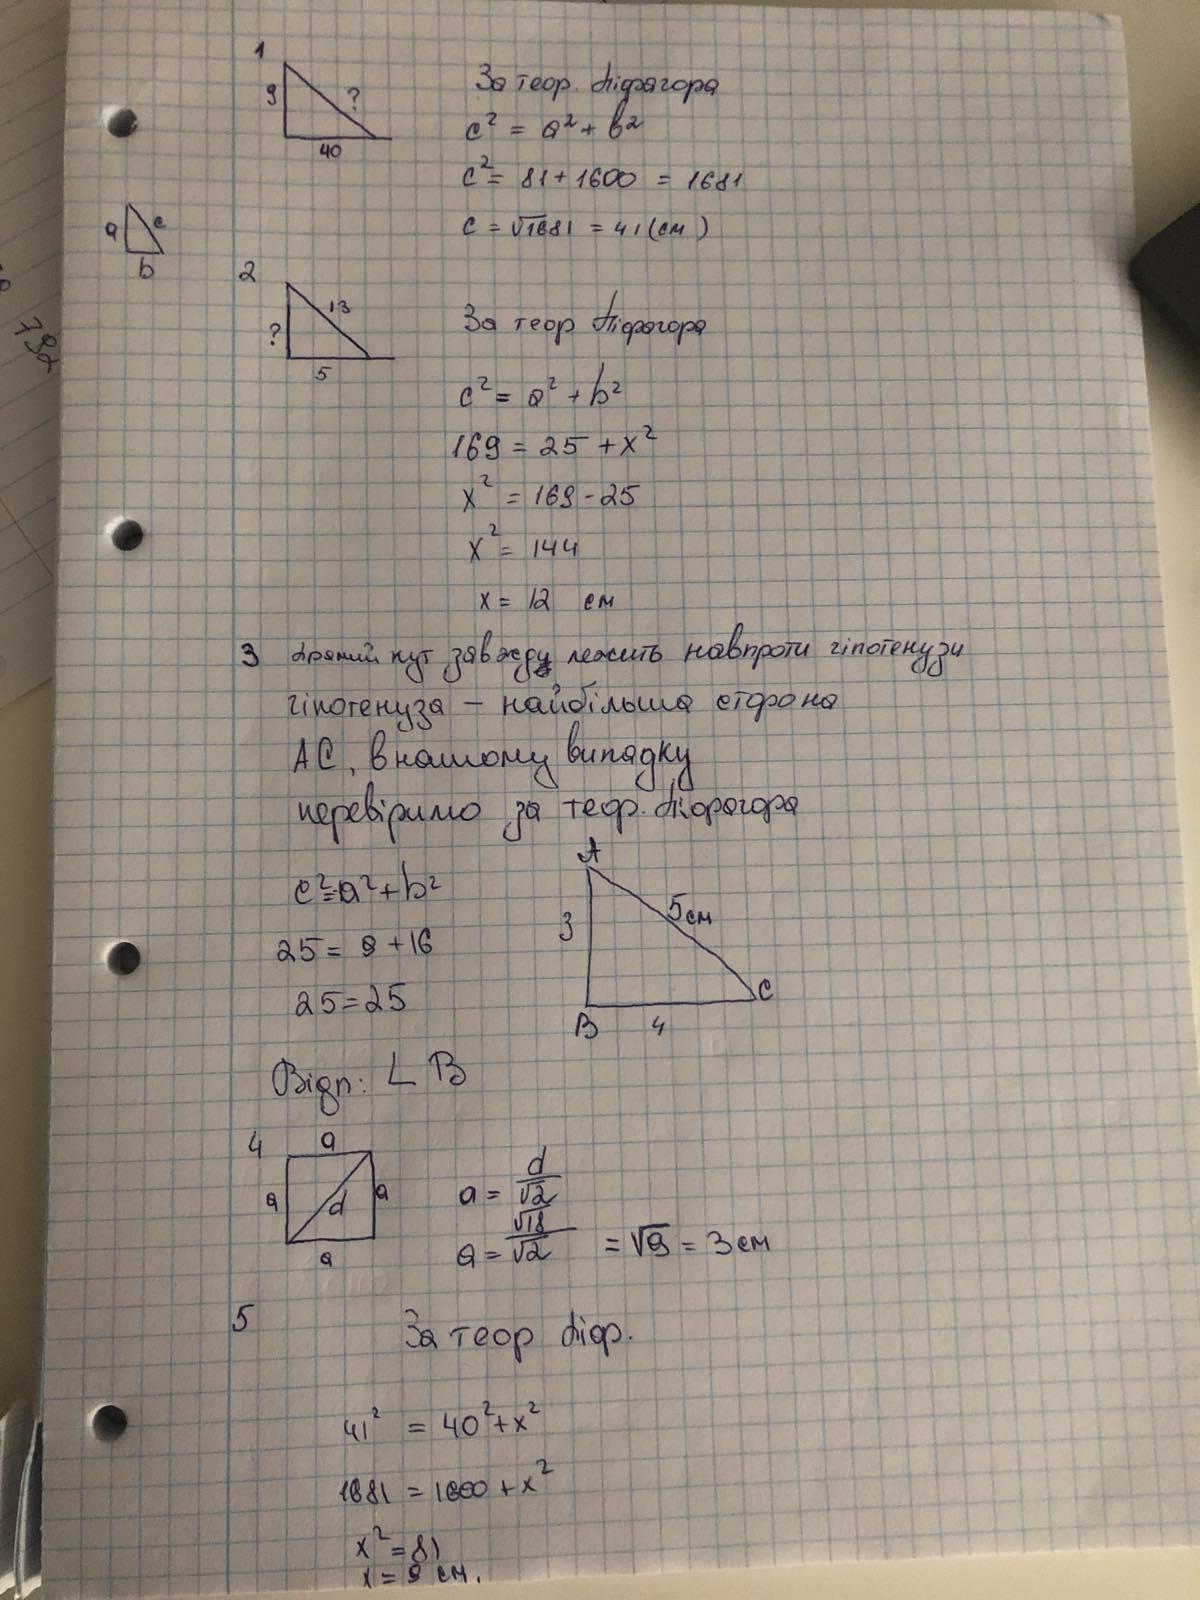 1
9
?
40
За теор. Піфагора
c² = a² + b²
c² = 81 + 1600 = 1681
c = √1681 = 41 (см)
a
c
b
792
2
?
13
5
За теор Піфагора
c² = a² + b²
169 = 25 + x²
x² = 169 - 25
x² = 144
x = 12 см
3 Прямий кут завжди лежить навпроти гіпотенузи
гіпотенуза – найбільша сторона
AC, в нашому випадку
перевіримо за теор. Піфагора
c² = a² + b²
25 = 9 + 16
25 = 25
A
3
5см
B
4
C
Відп: ∟ B
4
a
a
d
a
a
a = d/√2
a = √18/√2 = √9 = 3 см
5
За теор Піф.
41² = 40² + x²
1681 = 1600 + x²
x² = 81
x = 9 см.